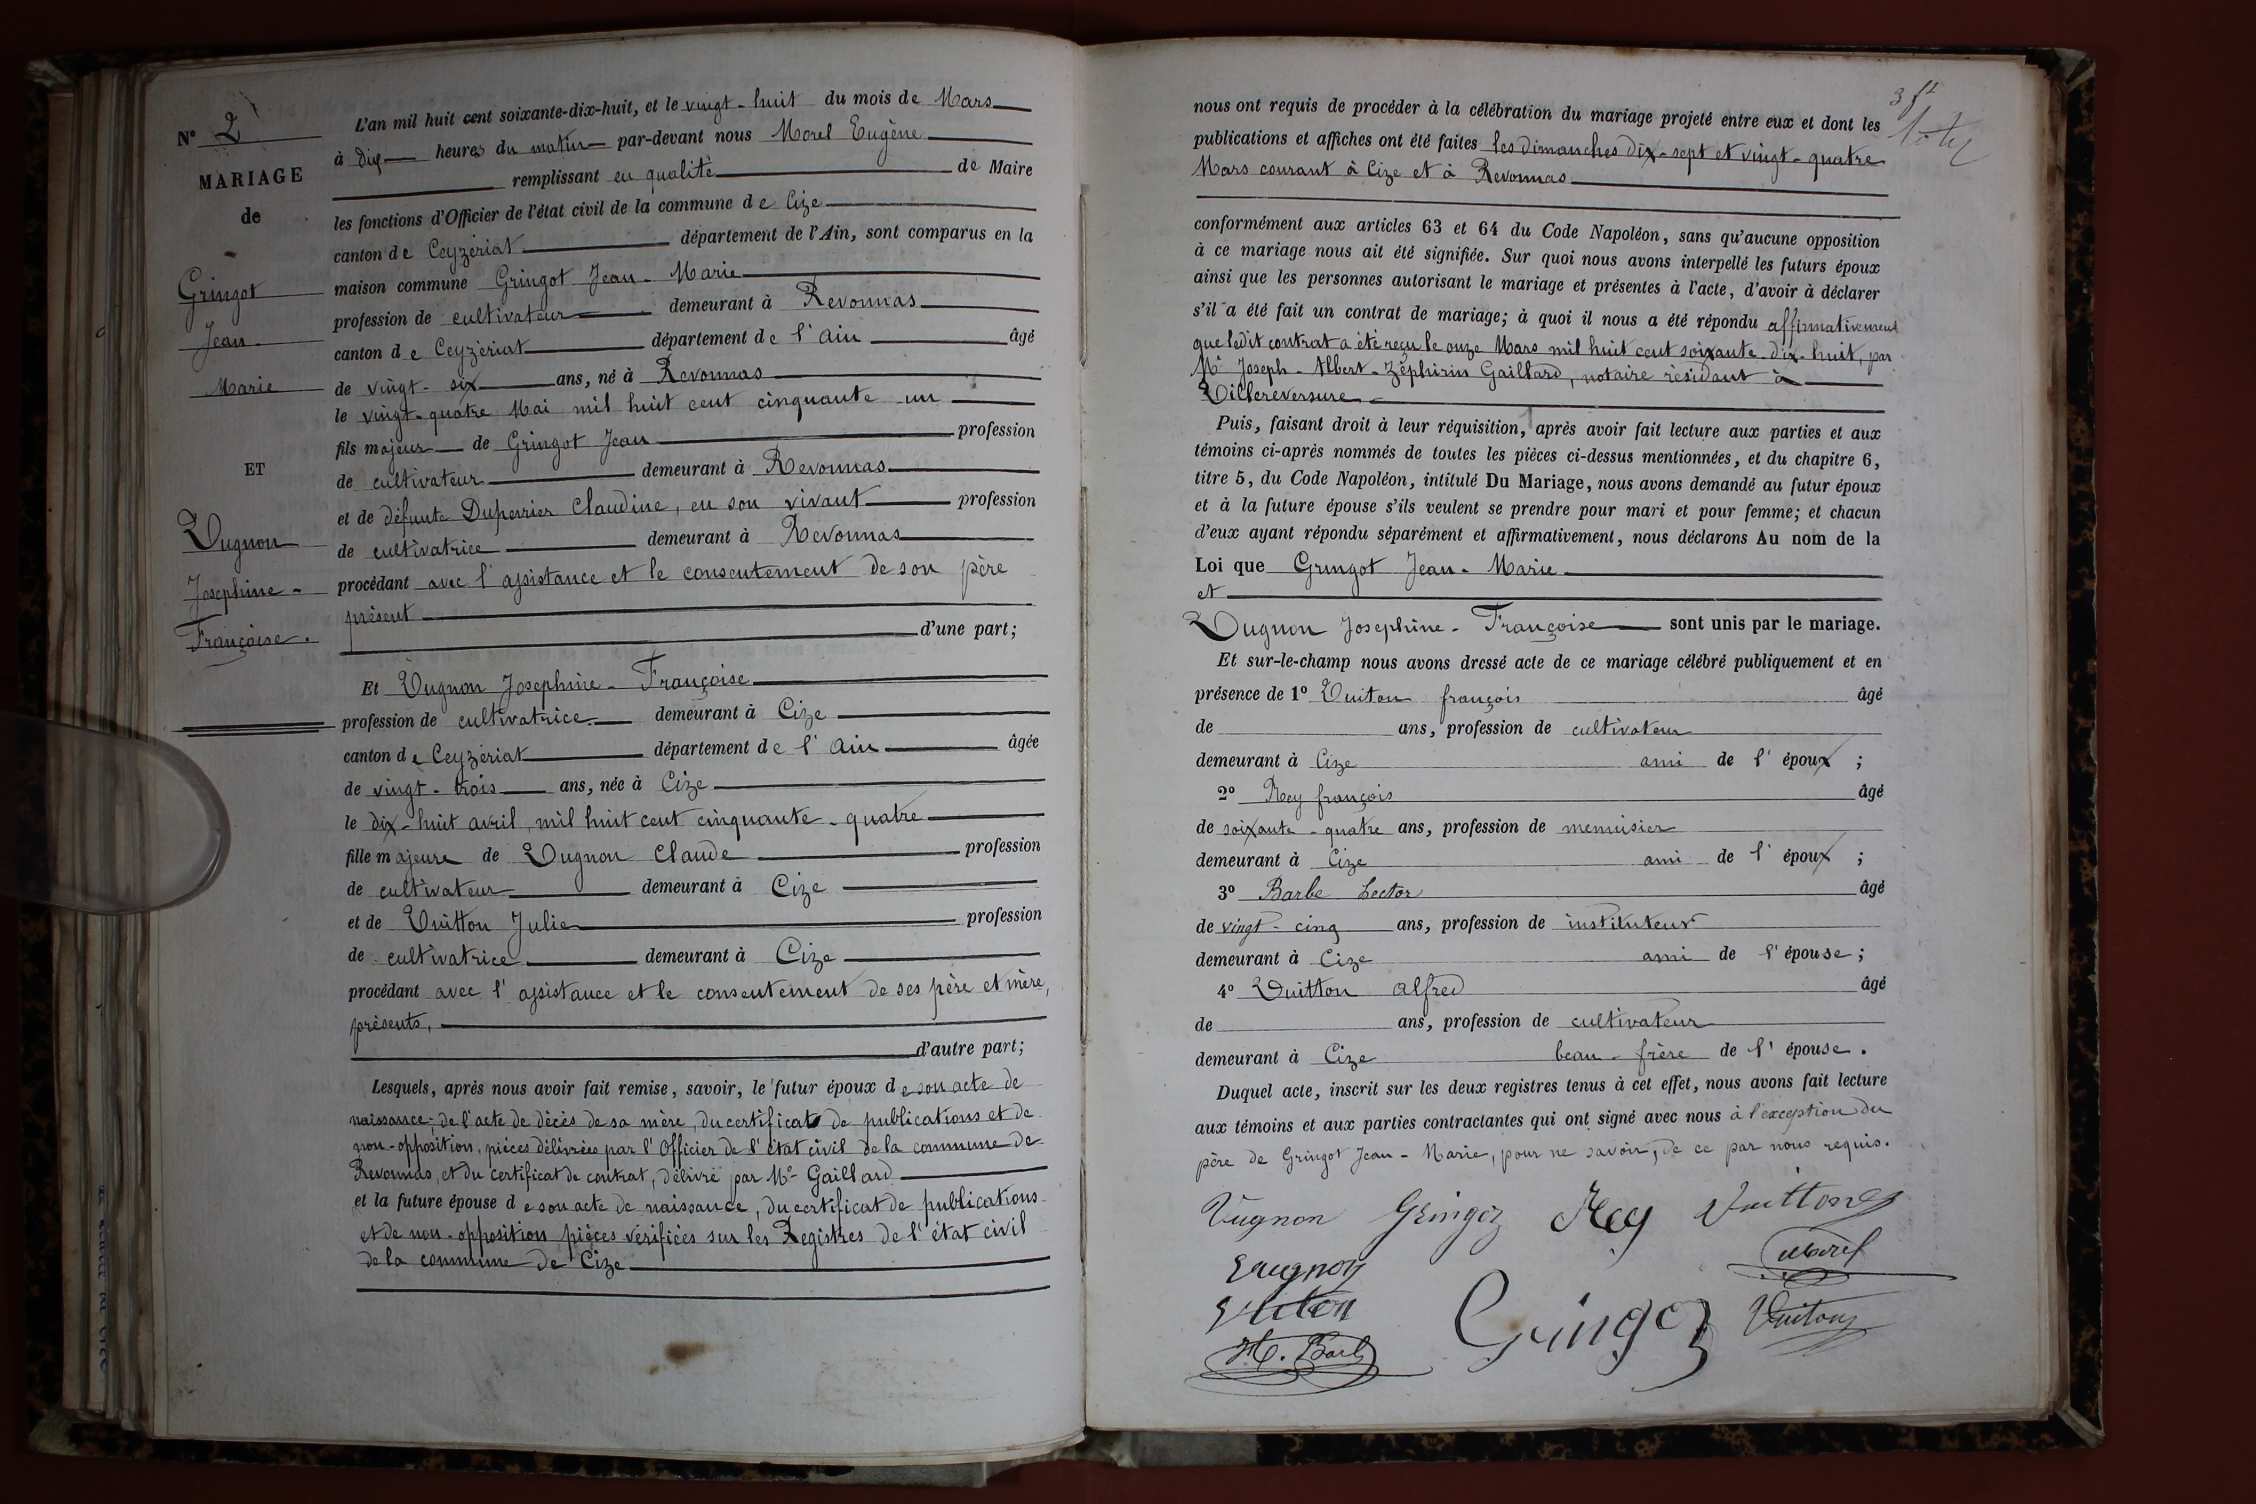 N° 2
MARIAGE
de
Gringot
Jean
Marie
ET
Vugnon
Josephine
Françoise.
L'an mil huit cent soixante-dix-huit, et le vingt-huit du mois de Mars
à dix heures du matin par-devant nous Morel Eugène
remplissant en qualité de Maire
les fonctions d'Officier de l'état civil de la commune de Cize
canton de Ceyzériat département de l'Ain, sont comparus en la
maison commune Gringot Jean-Marie
profession de cultivateur demeurant à Revonnas
canton de Ceyzériat département de l'Ain âgé
de vingt-six ans, né à Revonnas
le vingt-quatre Mai mil huit cent cinquante un
fils majeur de Gringot Jean profession
de cultivateur demeurant à Revonnas
et de défunte Duperrier Claudine, en son vivant profession
de cultivatrice demeurant à Revonnas
procédant avec l'assistance et le consentement de son père
présent
d'une part;
Et Vugnon Josephine-Françoise
profession de cultivatrice demeurant à Cize
canton de Ceyzériat département de l'Ain âgée
de vingt-trois ans, née à Cize
le dix-huit avril, mil huit cent cinquante-quatre
fille majeure de Vugnon Claude profession
de cultivateur demeurant à Cize
et de Vuitton Julie profession
de cultivatrice demeurant à Cize
procédant avec l'assistance et le consentement de ses père et mère,
présents,
d'autre part;
Lesquels, après nous avoir fait remise, savoir, le futur époux de son acte de
naissance, de l'acte de décès de sa mère, du certificat de publications et de
non-opposition, pièces délivrées par l'Officier de l'état civil de la commune de
Revonnas, et du certificat de contrat, délivré par Me Gaillard
et la future épouse de son acte de naissance, du certificat de publications
et de non-opposition pièces vérifiées sur les Registres de l'état civil
de la commune de Cize
nous ont requis de procéder à la célébration du mariage projeté entre eux et dont les
publications et affiches ont été faites les dimanches dix-sept et vingt-quatre
Mars courant à Cize et à Revonnas
conformément aux articles 63 et 64 du Code Napoléon, sans qu'aucune opposition
à ce mariage nous ait été signifiée. Sur quoi nous avons interpellé les futurs époux
ainsi que les personnes autorisant le mariage et présentes à l'acte, d'avoir à déclarer
s'il a été fait un contrat de mariage; à quoi il nous a été répondu affirmativement
que ledit contrat a été reçu le onze Mars mil huit cent soixante-dix-huit, par
Me Joseph-Albert-Zéphirin Gaillard, notaire résidant à
Villereversure
Puis, faisant droit à leur réquisition, après avoir fait lecture aux parties et aux
témoins ci-après nommés de toutes les pièces ci-dessus mentionnées, et du chapitre 6,
titre 5, du Code Napoléon, intitulé Du Mariage, nous avons demandé au futur époux
et à la future épouse s'ils veulent se prendre pour mari et pour femme; et chacun
d'eux ayant répondu séparément et affirmativement, nous déclarons Au nom de la
Loi que Gringot Jean-Marie
et
Vugnon Josephine-Françoise sont unis par le mariage.
Et sur-le-champ nous avons dressé acte de ce mariage célébré publiquement et en
présence de 1° Vuiton françois âgé
de ans, profession de cultivateur
demeurant à Cize ami de l'époux ;
2° Rey françois âgé
de soixante-quatre ans, profession de menuisier
demeurant à Cize ami de l'époux ;
3° Barbe hector âgé
de vingt-cinq ans, profession de instituteur
demeurant à Cize ami de l'épouse ;
4° Vuitton alfred âgé
de ans, profession de cultivateur
demeurant à Cize beau-frère de l'épouse .
Duquel acte, inscrit sur les deux registres tenus à cet effet, nous avons fait lecture
aux témoins et aux parties contractantes qui ont signé avec nous à l'exception du
père de Gringot Jean-Marie, pour ne savoir, de ce par nous requis.
Vugnon Gringoz Rey Vuitton
Vugnon Morel
Vuiton Gringoz Vuiton
H. Barbe